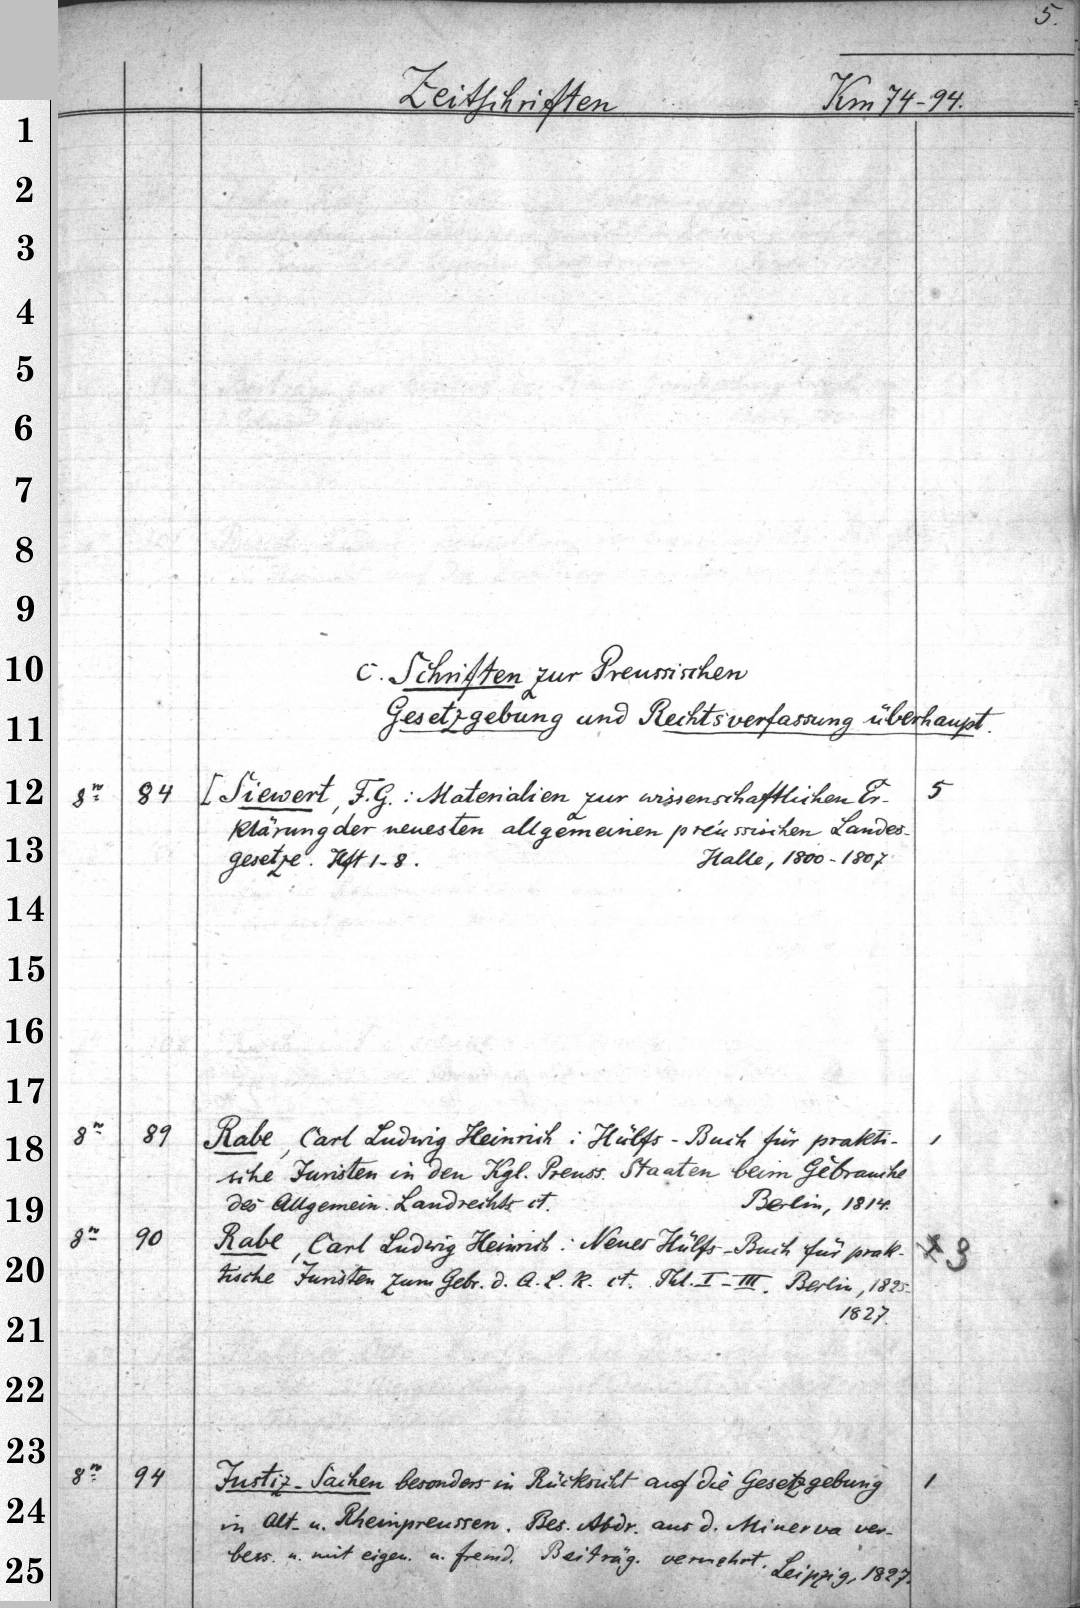 5.
Zeitschriften Km 74-94.
1
2
3
4
5
6
7
8
9
10 c. Schriften zur Preussischen
11 Gesetzgebung und Rechtsverfassung überhaupt.
12 8º 84 [Siewert, F.G.: Materialien zur wissenschaftlichen Er- 5
klärung der neuesten allgemeinen preussischen Landes-
13 gesetze. Hft 1-8. Halle, 1800-1807
14
15
16
17
18 8º 89 Rabe, Carl Ludwig Heinrich: Hülfs-Buch für prakti- 1
sche Juristen in den Kgl. Preuss. Staaten beim Gebrauche
19 des Allgemein. Landrechts ct. Berlin, 1814.
8º 90 Rabe, Carl Ludwig Heinrich: Neues Hülfs-Buch für prak- 3
20 tische Juristen zum Gebr. d. A. L. R. ct. Thl. I-III. Berlin, 1825-
21 1827.
22
23
8º 94 Justiz-Sachen besonders in Rücksicht auf die Gesetzgebung 1
24 in Alt- u. Rheinpreussen. Bes. Abdr. aus d. Minerva ver-
25 bess. u. mit eigen. u. fremd. Beiträg. vermehrt. Leipzig, 1827.